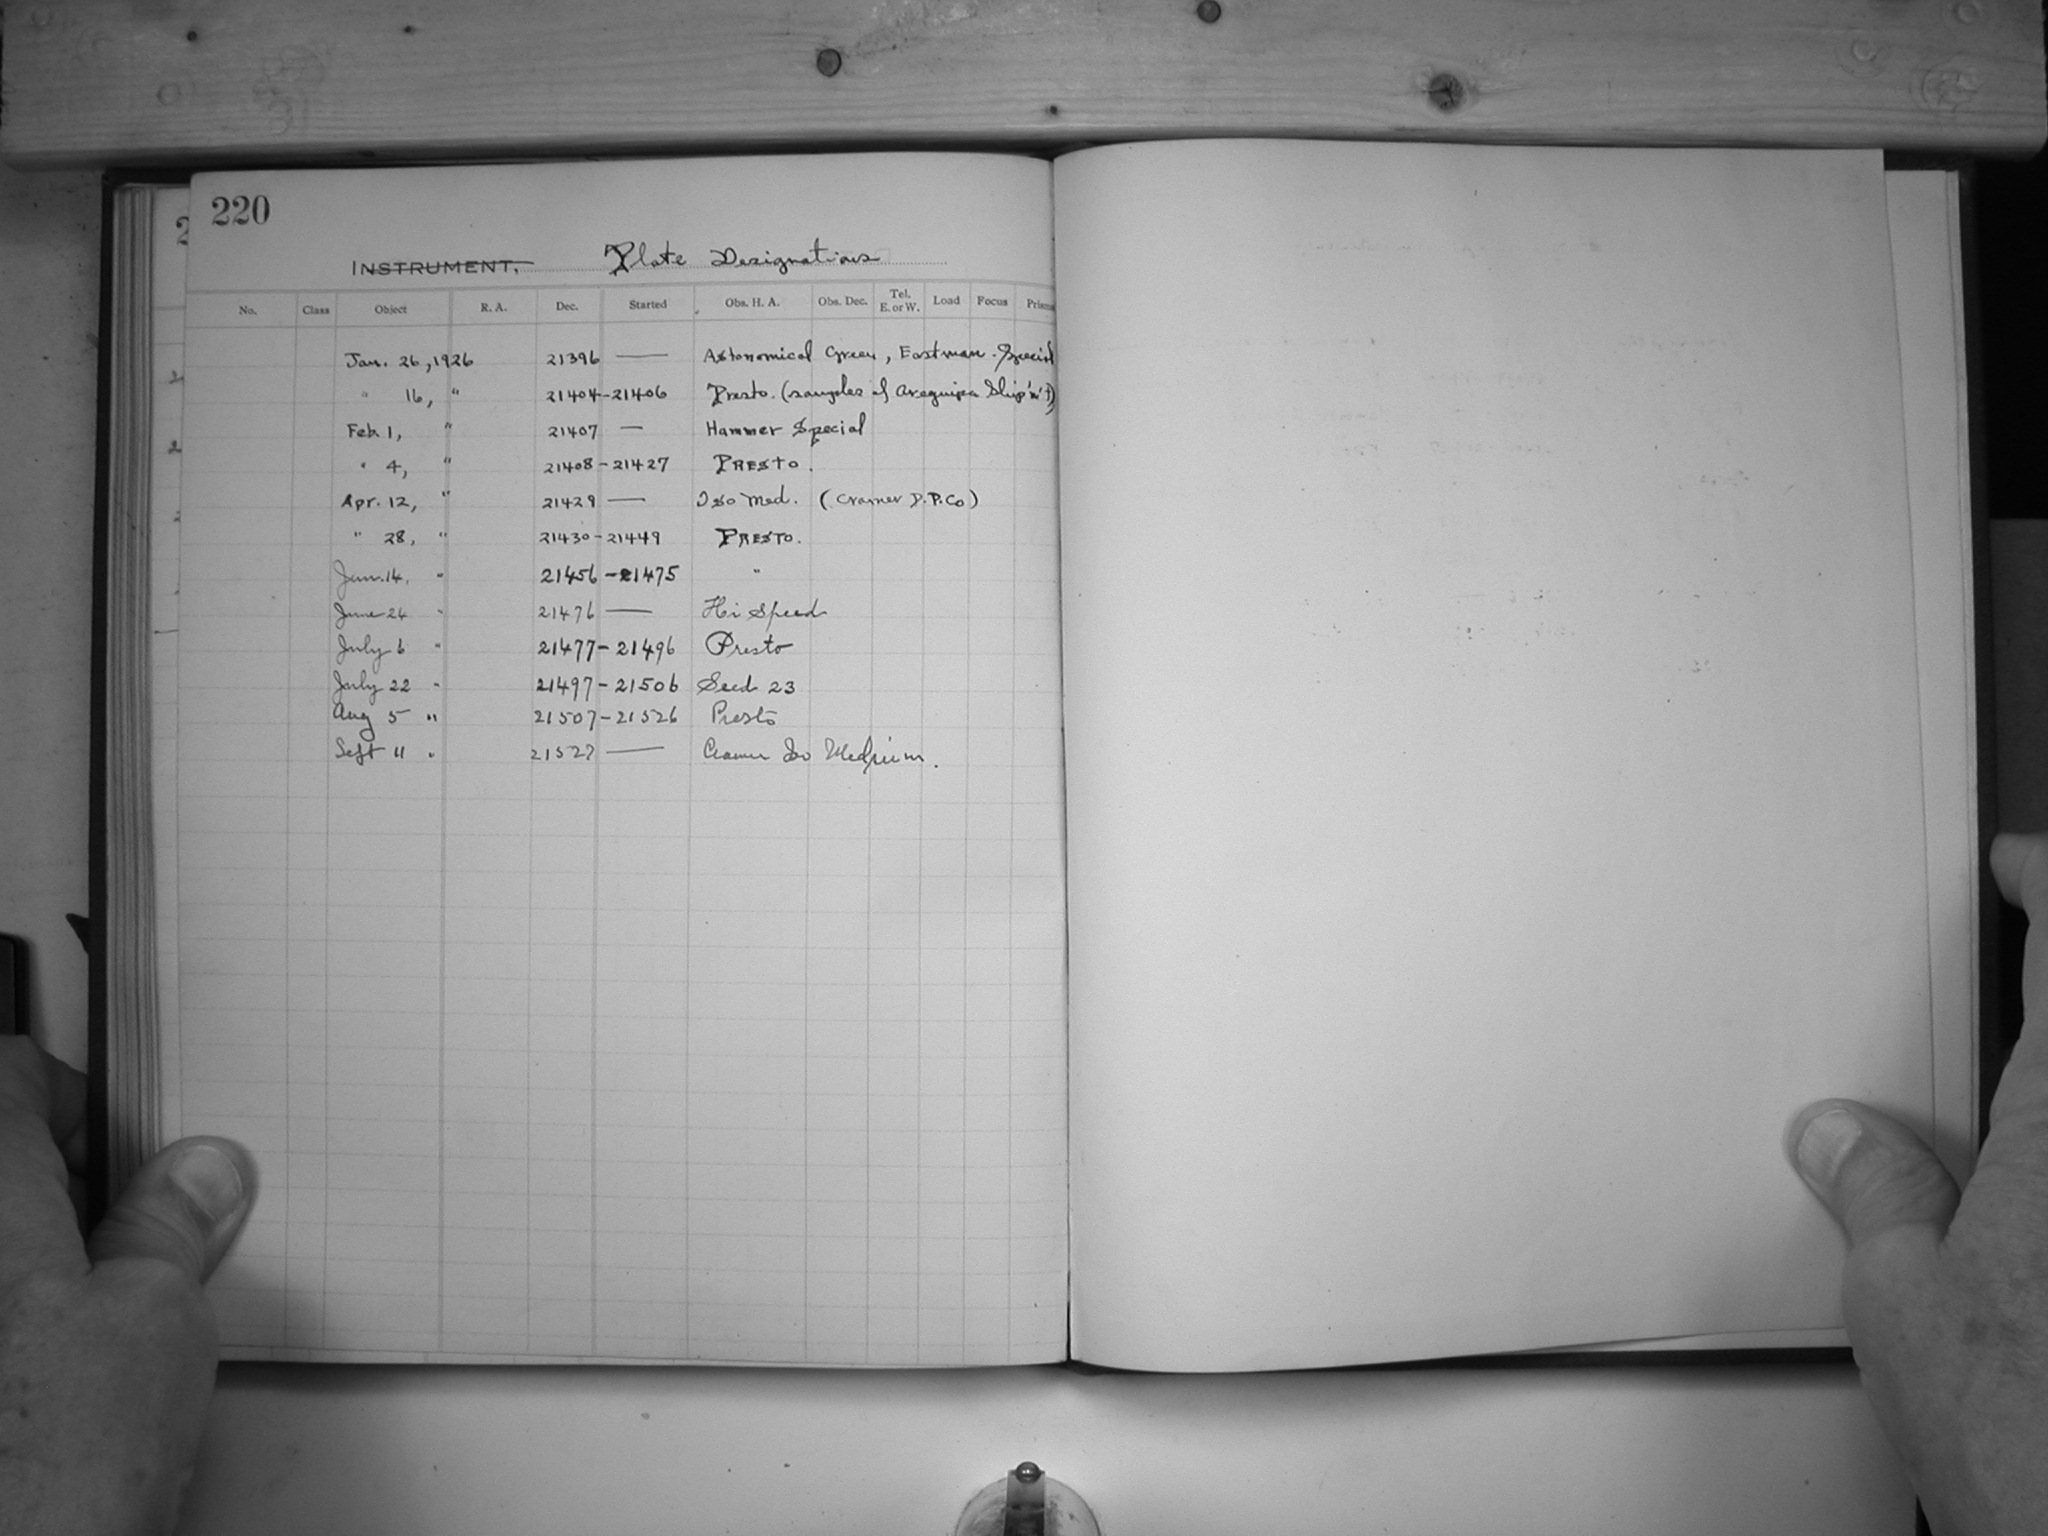 220
INSTRUMENT, Plate Designations
No. Class Object R. A. Dec. Started Obs. H. A. Obs. Dec. Tel. E. or W. Load Focus Prisms
Jan. 26, 1926 21396 — Astonomical Green, Eastman. Special
" 16, " 21404-21406 Presto. (samples of Arequipa Ship'm't)
Feb. 1, " 21407 — Hammer Special
" 4, " 21408-21427 PRESTO.
Apr. 12, " 21429 — Iso Med. (Cramer D.P.Co)
" 28, " 21430-21449 PRESTO.
Jun. 14, " 21456-21475 "
June 24 " 21476 — Hi Speed
July 6 " 21477-21496 Presto
July 22 " 21497-21506 Seed 23
Aug 5 " 21507-21526 Presto
Sept 11 " 21527 — Cramer Iso Medium.